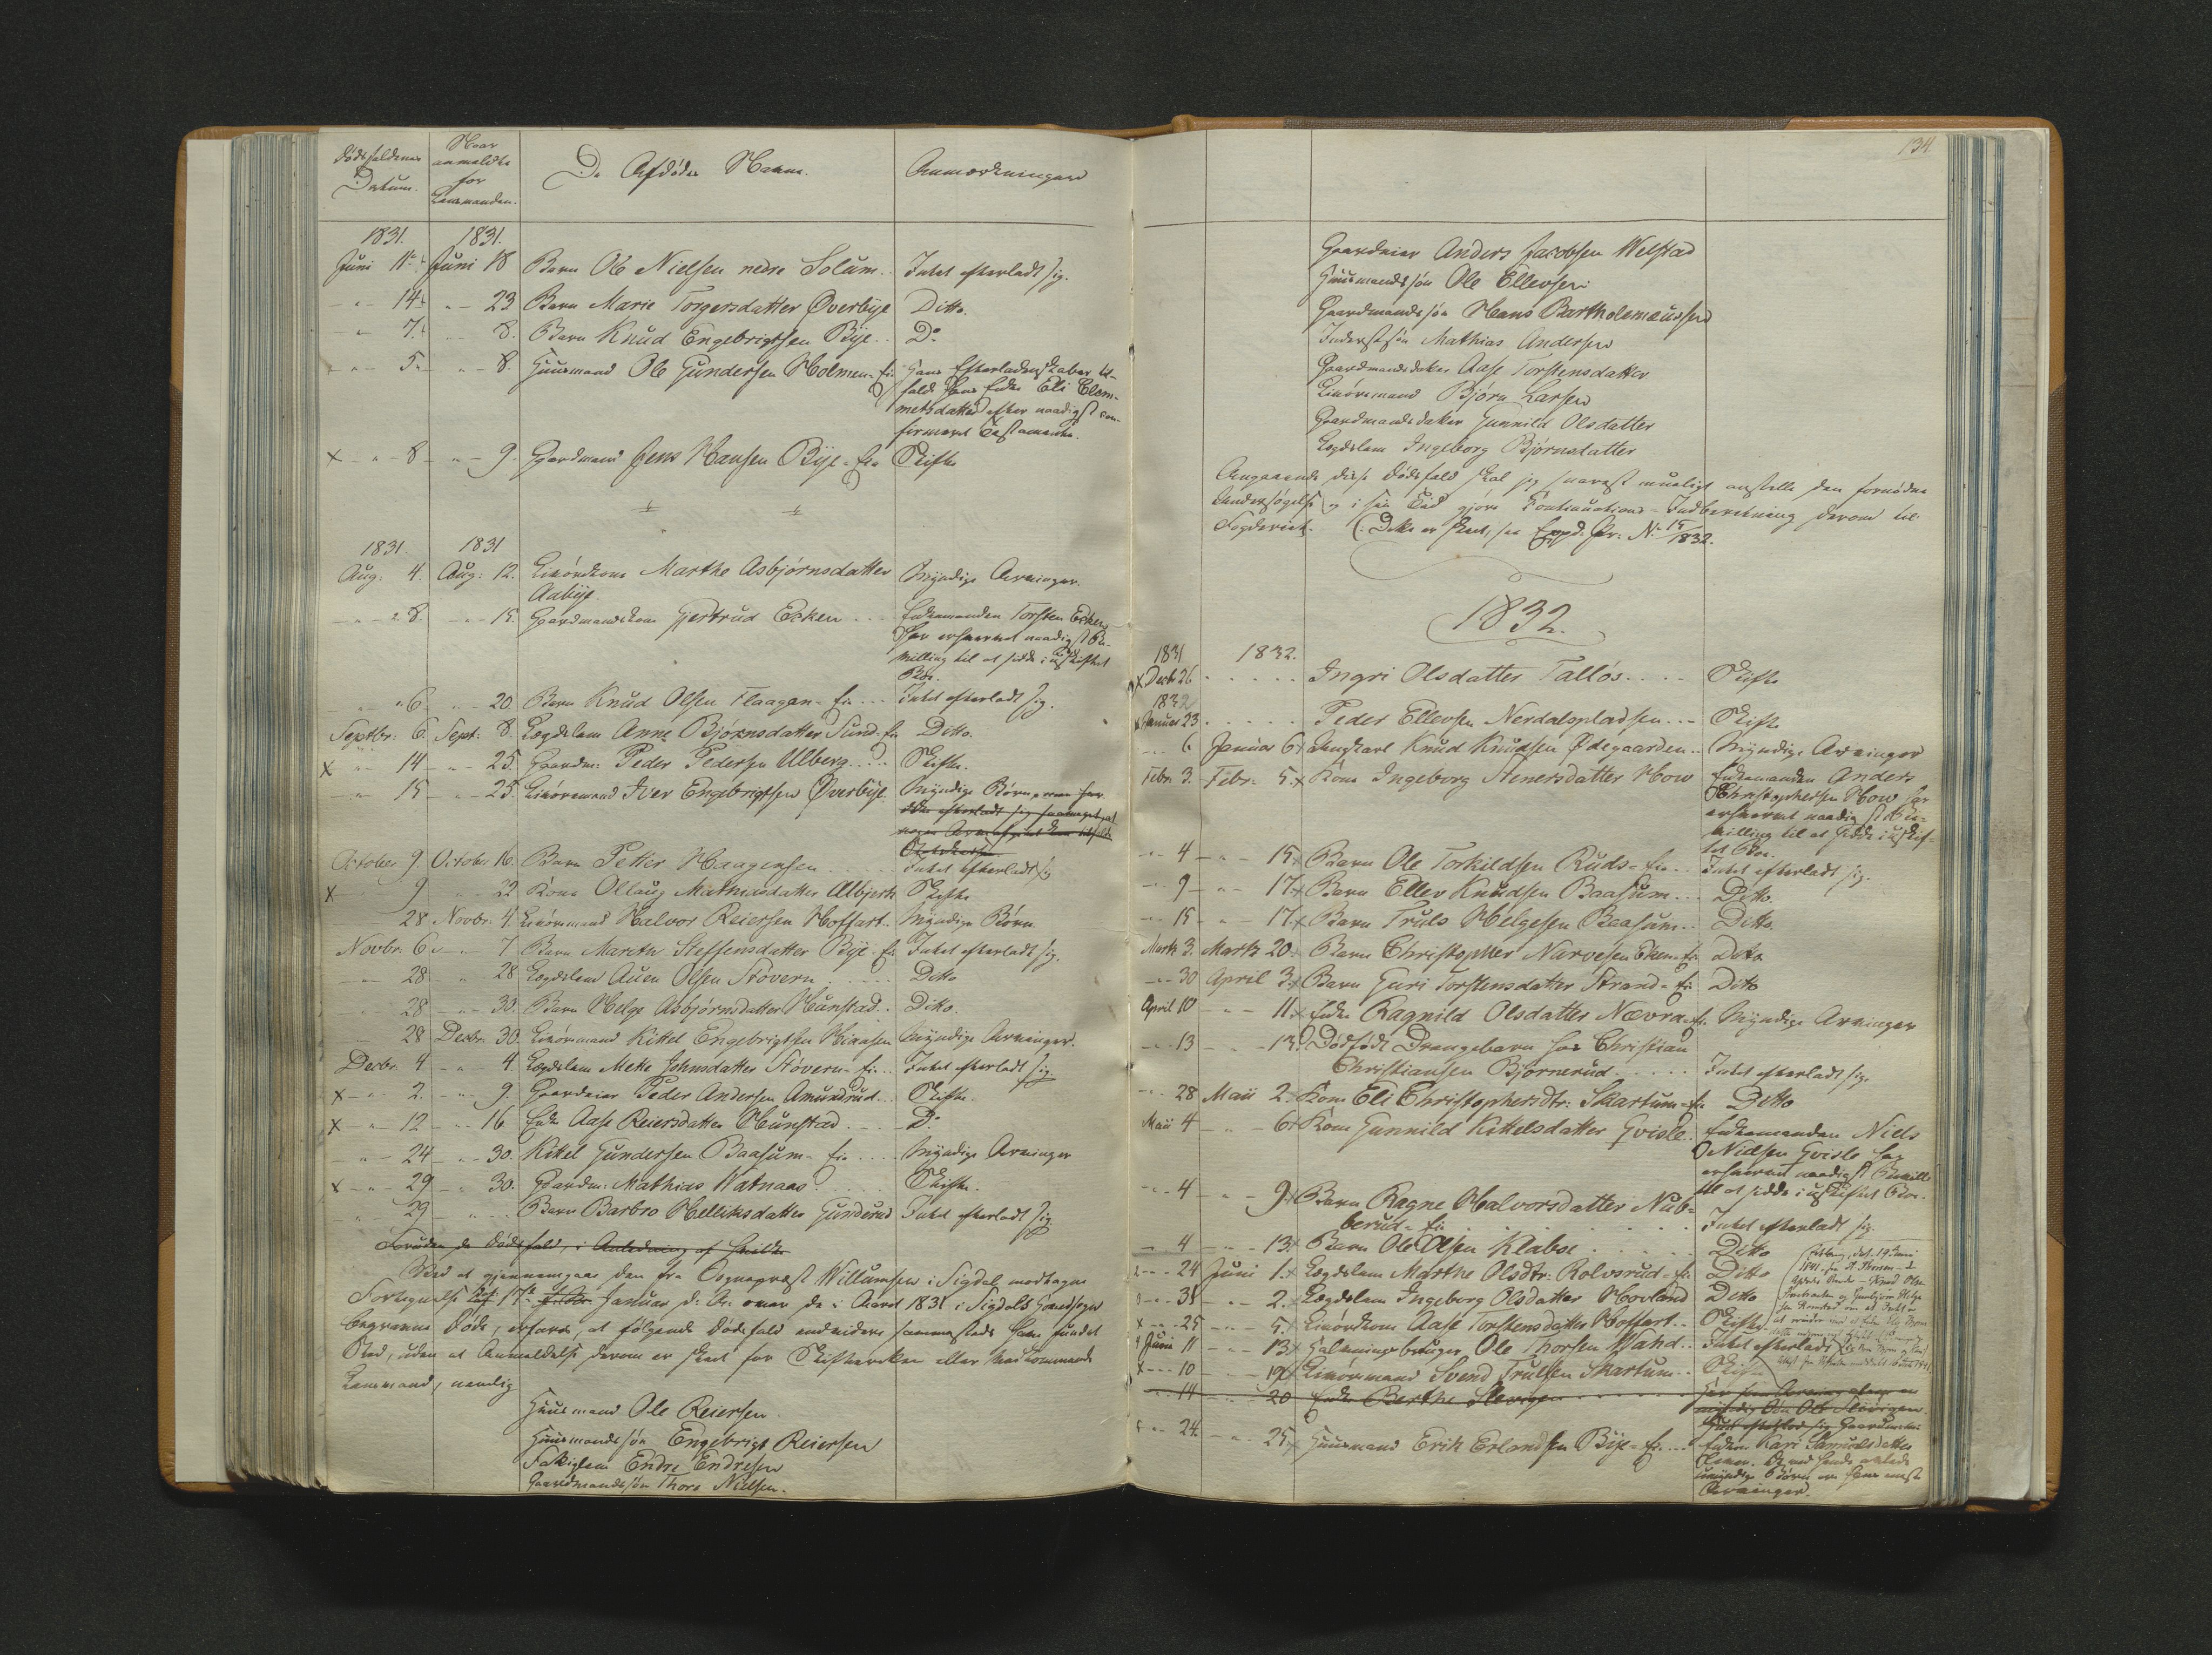 Dødsfaldenes Datum.
Naar anmeldte for Lensmanden.
De Afdødes Navne.
Anmærkninger
1831. 1831.
Juni 11te Juni 18 Barn Ole Nielsen nedre Solum. Intet efterladt sig.
- " - 14. - " - 23 Barn Marie Torgersdatter Øverbye Ditto.
- " 7. - " 8. Barn Knud Engebrigtsen Bye.. Do
- " - 5. - " - 8. Huusmand Ole Gundersen Holmen-Eie Hans Efterladenskaber til-
fald hans Enke Eli Clem-
metsdatter efter naadigst con-
firmeret Testamente.
x - " - 8 - " - 9. Gaardmand Jens Hansen Bye-Eie Skifte
1831. 1831
Aug: 4. Aug: 12. Livørekone Marthe Asbjørnsdatter Myndige Arvinger.
Aabye.
- " - 8. - " - 15. Gaardmandskone Gjertrud Eeken ... Enkemanden Torsten Eeken
har erhvervet naadigst Be-
villing til at sidde i uskiftet
Boe.
- " 6 - " - 20. Barn Knud Olsen Flaagan-Eie ... Intet efterladt sig.
Septbr: 6. Sept: 8. Lægdslem Anne Bjørnsdatter Lund-Eie Ditto.
x - " 14 - " - 25. Gaardm: Peder Pedersen Ulberg.... Skifte.
- " 15 - " - 25. Livøremand Iver Engebrigtsen Øverbye. Myndige Børn, men har
ikke efterladt sig saameget, at
October 9. October 16. Barn Petter Haagensen Intet efterladt sig
x 9 " - 22. Kone Ollaug Mathiasdatter Albjerk Skifte
28. Novbr. 4. Livøremand Halvor Reiersen Hoffart. Myndige Børn.
Novbr. 6 - " 7 Barn Marith Steffensdatter Bye-Eie Intet efterladt sig.
- " 28 - " 28 Lægdslem Auen Olsen Støvern Ditto
28 - " - 30. Barn Helge Asbjørnsdatter Hunstad. Ditto.
28 Decbr. 30. Livøremand Kittel Engebrigtsen Myndige Arvinger.
Decbr. 4 - " 4 Lægdslem Mette Johnsdatter Støvern-Eie.. Intet efterladt sig
x - " 2. - " - 9. Gaardeier Peder Andersen Amundrud.. Skifte.
x - " 12 - " 16 Enke Aase Reiersdatter Hunstad. Do
- " - 24 - " - 30. Kittel Gundersen Baasum-Eie .... Myndige Arvinger
x - " - 29 - " 30. Gaardm: Mathias Watnaas. Skifte.
- " 29 - " Barn Barbro Helliksdatter Gunderud Intet efterladt sig
Foruden de Dødsfald, i Anledning af
Ved at gjennemgaae den fra Sognepræst Willumsen i Sigdal modtagne
Fortegnelse af 17de Januar d: A: over de i Aaret 1831 i Sigdals Hovedsogn
begravne Døde, erfares, at følgende Dødsfald endvidere sammesteds have fundet
Sted, uden at Anmeldelse derom er skeet for Skifteretten eller vedkommende
Lensmand, nemlig
Huusmand Ole Reiersen.
Huusmandssøn Engebrigt Reiersen
Fattiglem Endre Endresen
Gaardmandssøn Thore Nielsen.
134
Gaardeier Anders Jacobsen Welstad
Huusmandssøn Ole Ellevsen
Gaardmandssøn Hans Bartholomæussen
Inderstsøn Mathias Andersen
Gaardmandsdatter Aase Torstensdatter
Livøremand Bjørn Larsen
Gaardmandsdatter Gunnild Olsdatter
Lægdslem Ingeborg Bjørnsdatter
Angaaende disse Dødsfald skal jeg snarest mueligt anstille den fornødne
Undersøgelse og i sin Tid gjøre Continuations-Indberetning derom til
Fogderiet. (: Dette er skeet, see Expd: Pr: No 15/1832.
1832.
1831 1832.
x Decbr 26 ..... Ingri Olsdatter Talløs.... Skifte
1832
x Januar 23 ..... Peder Ellevsen Nerdalspladsen... Skifte
- " 6 Januar 6 x Ungkarl Knud Knudsen Ødegaarden.. Myndige Arvinger
Febr. 3. Febr. 5. x Kone Ingeborg Stenersdatter How Enkemanden Anders
Christophersen How har
erhvervet naadigst Be-
villing til at sidde i uskif-
tet Boe.
- " 4 - " - 15 x Barn Ole Torkildsen Ruds-Eie.. Intet efterladt sig.
- " 9 - " - 17 x Barn Ellev Knudsen Baasum... Ditto.
- " 15 - " 17 x Barn Truls Helgesen Baasum.. Ditto.
Marts 3. Marts 20 x Barn Christopher Narvesen Eken-Eie Ditto
- " 30 April 3 x Barn Guri Torstensdatter Strand-Eie Ditto
April 10 - " - 11 x Enke Ragnild Olsdatter Nævra-E. Myndige Arvinger
- " 13 - " - 13 Dødfødt Drengebarn for Christian
Christiansen Bjørnerud..... Intet efterladt sig.
- " 28 Maii 2 x Kone Eli Christophersdtr: Skartum-Eie Ditto
Maii 4 - " - 6 x Kone Gunnild Kittelsdatter Gvisle. Enkemanden Niels
Nielsen Gvisle har
erhvervet naadigst Bevill:
til at sidde i uskiftet Boe.
- " 4 - " - 9 x Barn Ragne Halvorsdatter Nub-
berud-Eie ...... Intet efterladt sig.
- " 4 - " - 13 x Barn Ole Olsen Klaboe ..... Ditto
- " 24 Juni 1 x Lægdslem Marthe Olsdtr: Rolvsrud-Eie Ditto
- " 31 - " - 2. x Lægdslem Ingeborg Olsdatter Hovland Ditto
x - " 25 - " - 5. x Livørekone Aase Torstensdatter Hoffart.. Skifte
Juni 11 - " - 13 x Ole Thorsen Wahd.. Intet efterladt
x - " 10 - " - 19 x Livøremand Svend Trulsen Skartum.. Skifte
- " 14 - " 20 Enke Berthe Slevigen
- " 24 - " - 25 x Huusmand Erik Erlandsen Bye-Eie.... Enken Kari Samuelsdatter
umyndige Børn ere hans eneste
Arvinger.